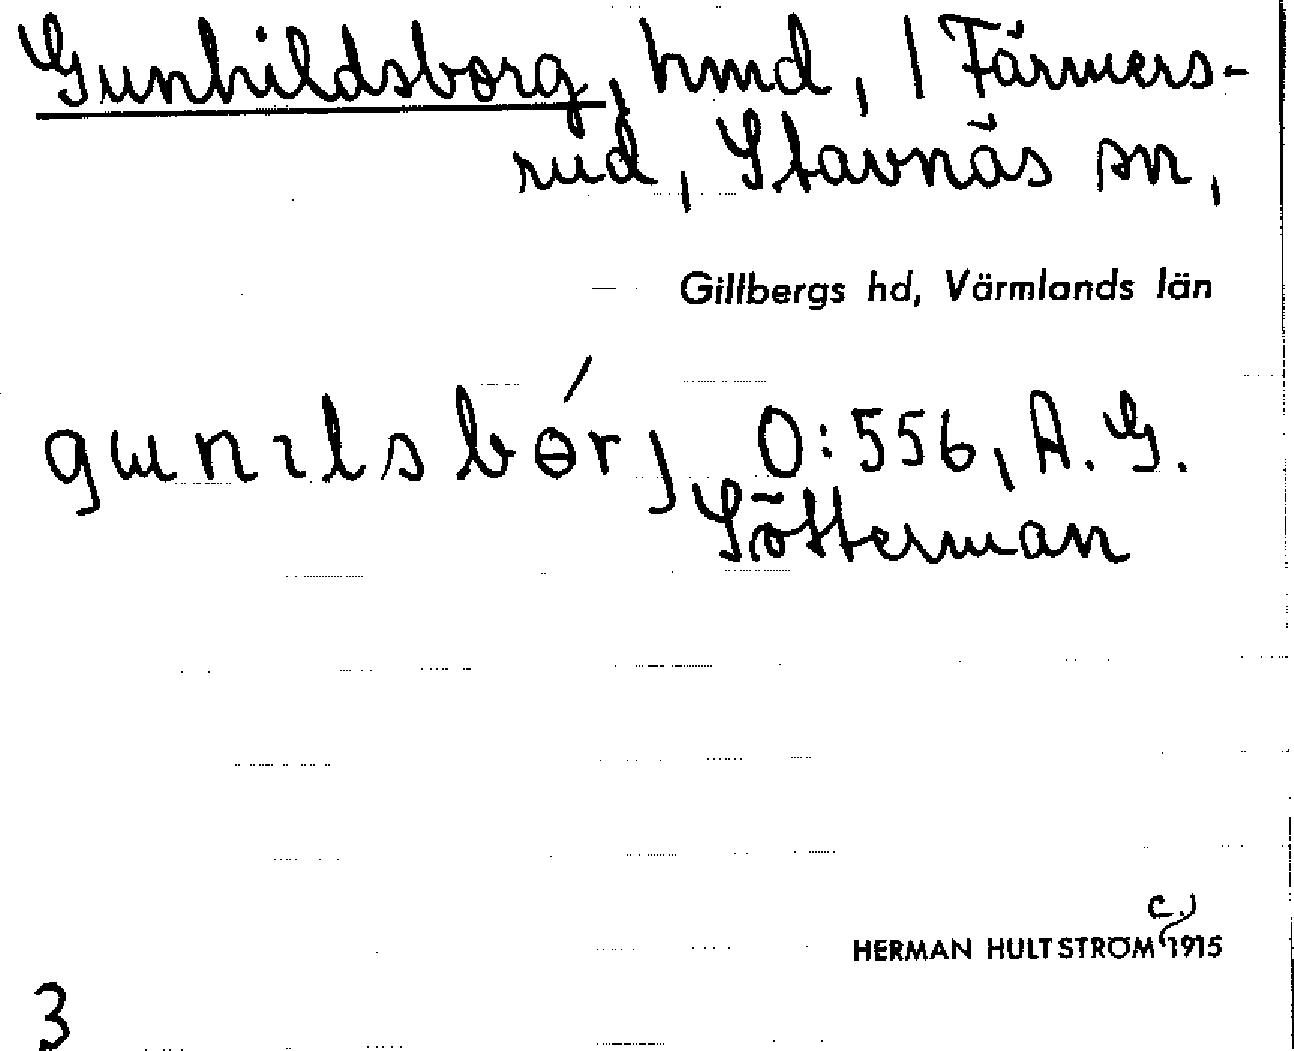 Gunhildsborg, hmd, / Färmers-
rud, Stavnäs sn,
Gillbergs hd, Värmlands län
gɯnɩlsbɵ́rj O:556, A. G.
Sötterman
c.)
HERMAN HULTSTRÖM 1915
3